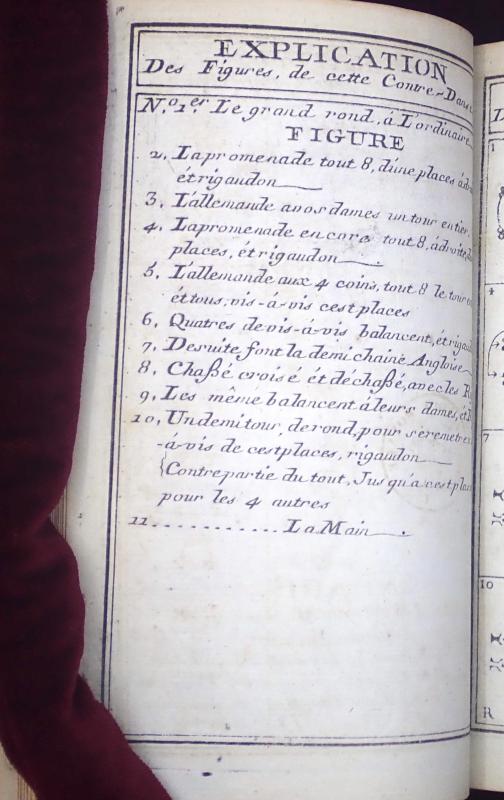 EXPLICATION
Des Figures, de cette Contre-Danse
N.º 1.er Le grand rond, á L'ordinaire
FIGURE
2, La promenade tout 8, d'une places á
étrigaudon
3, L'allemande a nos dames un tour entier
4, La promenade encore tout 8, á droite,
places, étrigaudon.
5, L'allemande aux 4 coins, tout 8 le tour
ét tous, vis-á-vis cest places
6, Quatres de vis-á-vis balancent, étrigau
7, De suite font la demi chaine Angloise
8, Chaßé croisé ét déchaßé, avec les R
9, Les même balancent á leurs dames, ét R
10, Un demi tour, de rond, pour se remetre
-á-vis de cest places, rigaudon
Contre partie du tout, Jusqu'a cest pla
pour les 4 autres
11............ La Main.
1
4
7
10
R